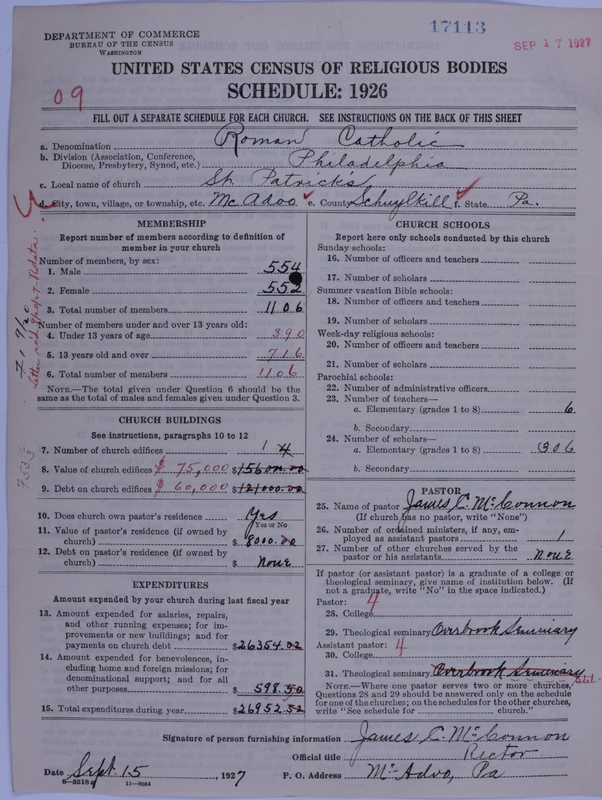 DEPARTMENT OF COMMERCE
BUREAU OF THE CENSUS
WASHINGTON
17113
SEP 17 1927
UNITED STATES CENSUS OF RELIGIOUS BODIES
SCHEDULE: 1926
09
FILL OUT A SEPARATE SCHEDULE FOR EACH CHURCH. SEE INSTRUCTIONS ON THE BACK OF THIS SHEET
a. Denomination Roman Catholic
b. Division (Association, Conference, Diocese, Presbytery, Synod, etc.) Philadelphia
c. Local name of church St. Patrick's
d. City, town, village, or township, etc. McAdoo e. County Schuylkill f. State Pa.
MEMBERSHIP
Report number of members according to definition of
member in your church
Number of members, by sex:
1. Male 554
2. Female 552
3. Total number of members 1106
Number of members under and over 13 years old:
4. Under 13 years of age 390
5. 13 years old and over 716
6. Total number of members 1106
NOTE.—The total given under Question 6 should be
the same as the total of males and females given under Question 3.
CHURCH BUILDINGS
See instructions, paragraphs 10 to 12
7. Number of church edifices 1 4
8. Value of church edifices $ 75,000 $156000.00
9. Debt on church edifices $ 60,000 $121000.00
10. Does church own pastor's residence Yes
Yes or No
11. Value of pastor's residence (if owned by
church) $ 8000.00
12. Debt on pastor's residence (if owned by
church) $ None
EXPENDITURES
Amount expended by your church during last fiscal year
13. Amount expended for salaries, repairs,
and other running expenses; for im-
provements or new buildings; and for
payments on church debt $26354.02
14. Amount expended for benevolences, in-
cluding home and foreign missions; for
denominational support; and for all
other purposes $ 598.50
15. Total expenditures during year $26952.52
CHURCH SCHOOLS
Report here only schools conducted by this church
Sunday schools:
16. Number of officers and teachers
17. Number of scholars
Summer vacation Bible schools:
18. Number of officers and teachers
19. Number of scholars
Week-day religious schools:
20. Number of officers and teachers
21. Number of scholars
Parochial schools:
22. Number of administrative officers
23. Number of teachers—
a. Elementary (grades 1 to 8) 6
b. Secondary
24. Number of scholars—
a. Elementary (grades 1 to 8) 306
b. Secondary
PASTOR
25. Name of pastor James C. McConnon
(If church has no pastor, write "None")
26. Number of ordained ministers, if any, em-
ployed as assistant pastors 1
27. Number of other churches served by the
pastor or his assistants None
If pastor (or assistant pastor) is a graduate of a college or
theological seminary, give name of institution below. (If
not a graduate, write "No" in the space indicated.)
Pastor: 4
28. College
29. Theological seminary Overbrook Seminary
Assistant pastor: 4
30. College
31. Theological seminary Overbrook Seminary
NOTE.—Where one pastor serves two or more churches,
Questions 28 and 29 should be answered only on the schedule
for one of the churches; on the schedules for the other churches,
write "See schedule for church."
Signature of person furnishing information James C. McConnon
Official title Rector
Date Sept. 15, 1927 P. O. Address McAdoo, Pa
11—9064